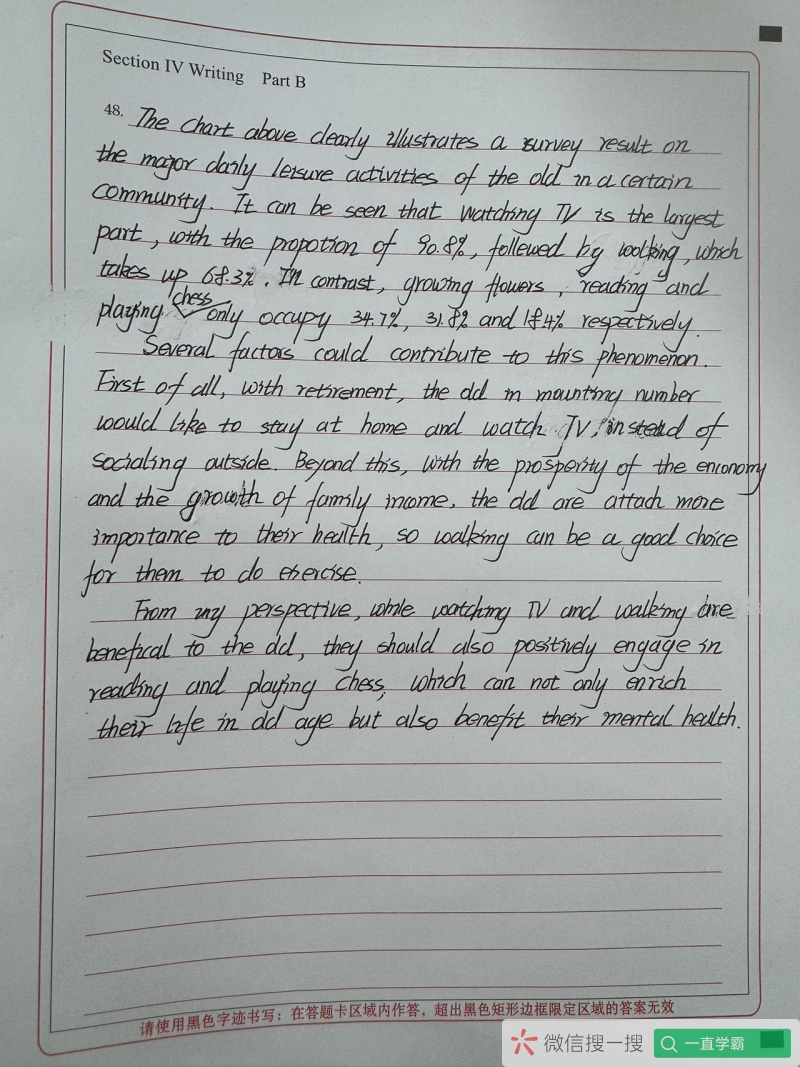 Section IV Writing Part B
48. The chart above clearly illustrates a survey result on
the major daily leisure activities of the old in a certain
community. It can be seen that watching TV is the largest
part, with the propotion of 90.8%, followed by walking, which
takes up 68.3%. In contrast, growing flowers, reading and
playing chess only occupy 34.7%, 31.8% and 18.4% respectively.
Several factors could contribute to this phenomenon.
First of all, with retirement, the old in mounting number
would like to stay at home and watch TV, instead of
socialing outside. Beyond this, with the prosperity of the enconomy
and the growth of family income, the old are attach more
importance to their health, so walking can be a good choice
for them to do exercise.
From my perspective, while watching TV and walking are
benefical to the old, they should also positively engage in
reading and playing chess, which can not only enrich
their life in old age but also benefit their mental health.
请使用黑色字迹书写：在答题卡区域内作答，超出黑色矩形边框限定区域的答案无效
微信搜一搜 一直学霸